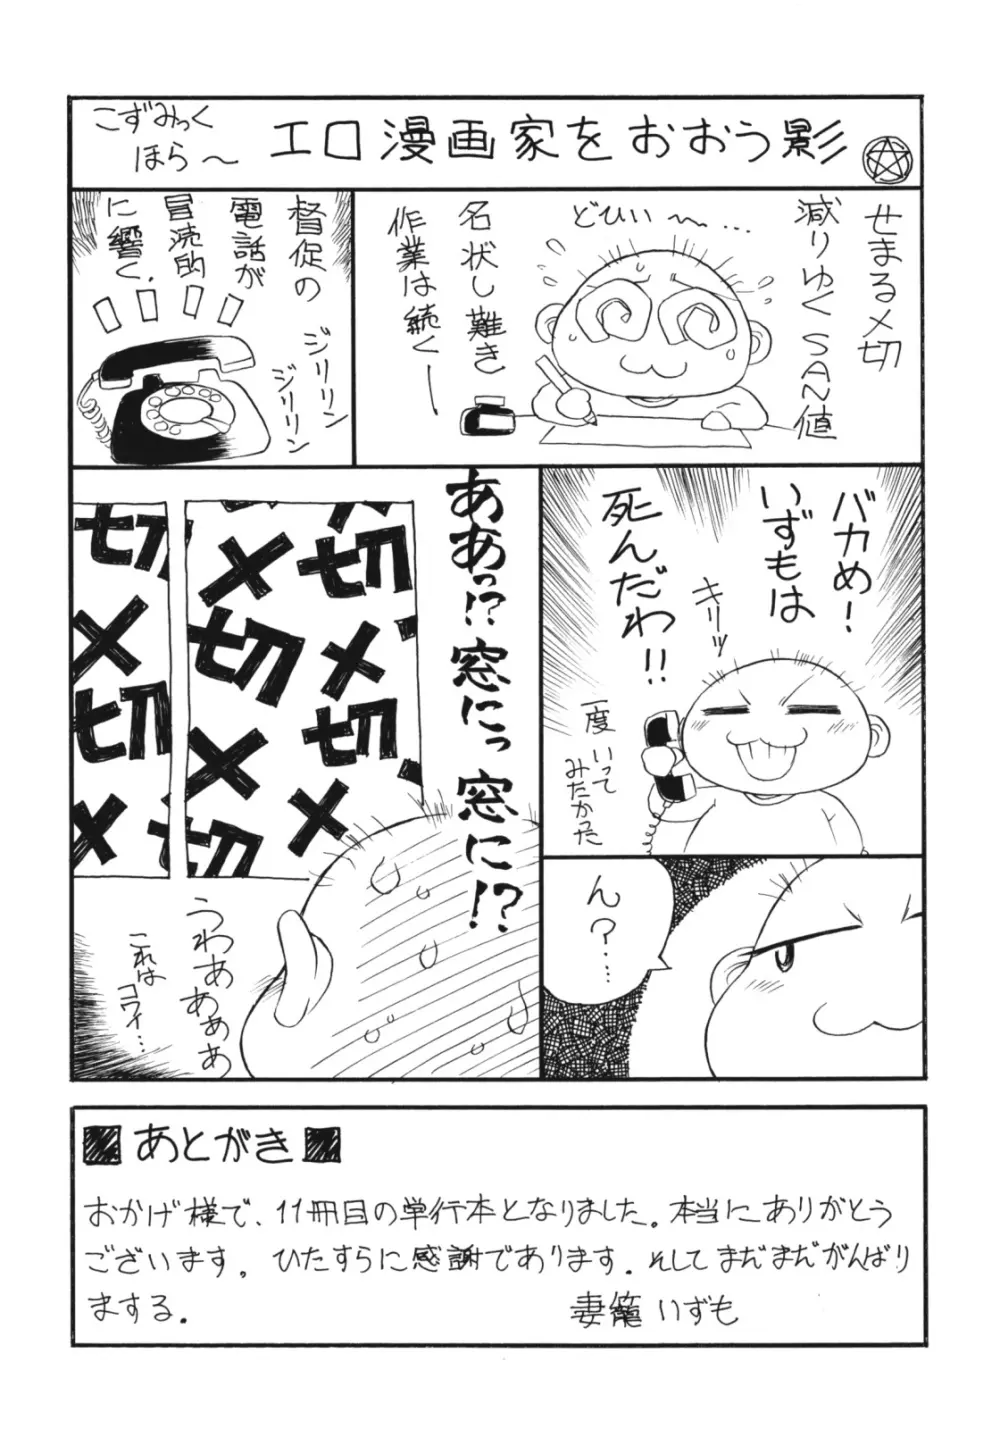 こずみっく
ほら〜
エロ漫画家をおおう影
せまる〆切
減りゆくSAN値
どひぃ〜…
名状し難き
作業は続く―
督促の
電話が
冒涜的
に響く、
ジリリン
ジリリン
バカめ!
いずもは
死んだわ!!
キリーッ
一度いって
みたかった
ん?…
ああっ!?窓にっ窓に!?
〆切
〆切
〆切
〆切
〆切
〆切
うわあぁぁぁ
これは
コワイ…
■あとがき■
おかげ様で、11冊目の単行本となりました。本当にありがとう
ございます。ひたすらに感謝であります。そしてまだまだがんばり
まする。
妻籠いずも